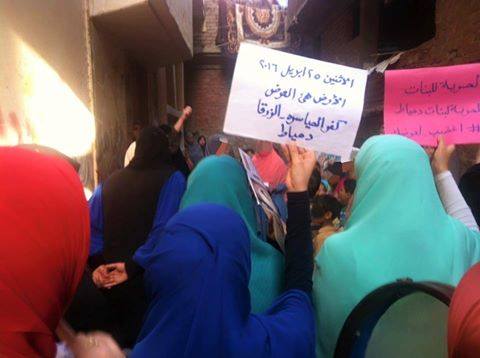 الاثنين ٢٥ ابريل ٢٠١٦
الأرض هي العرض
كفر المياسرة - الزرقا
دمياط
الحرية للبنات
الحرية لبنات دمياط